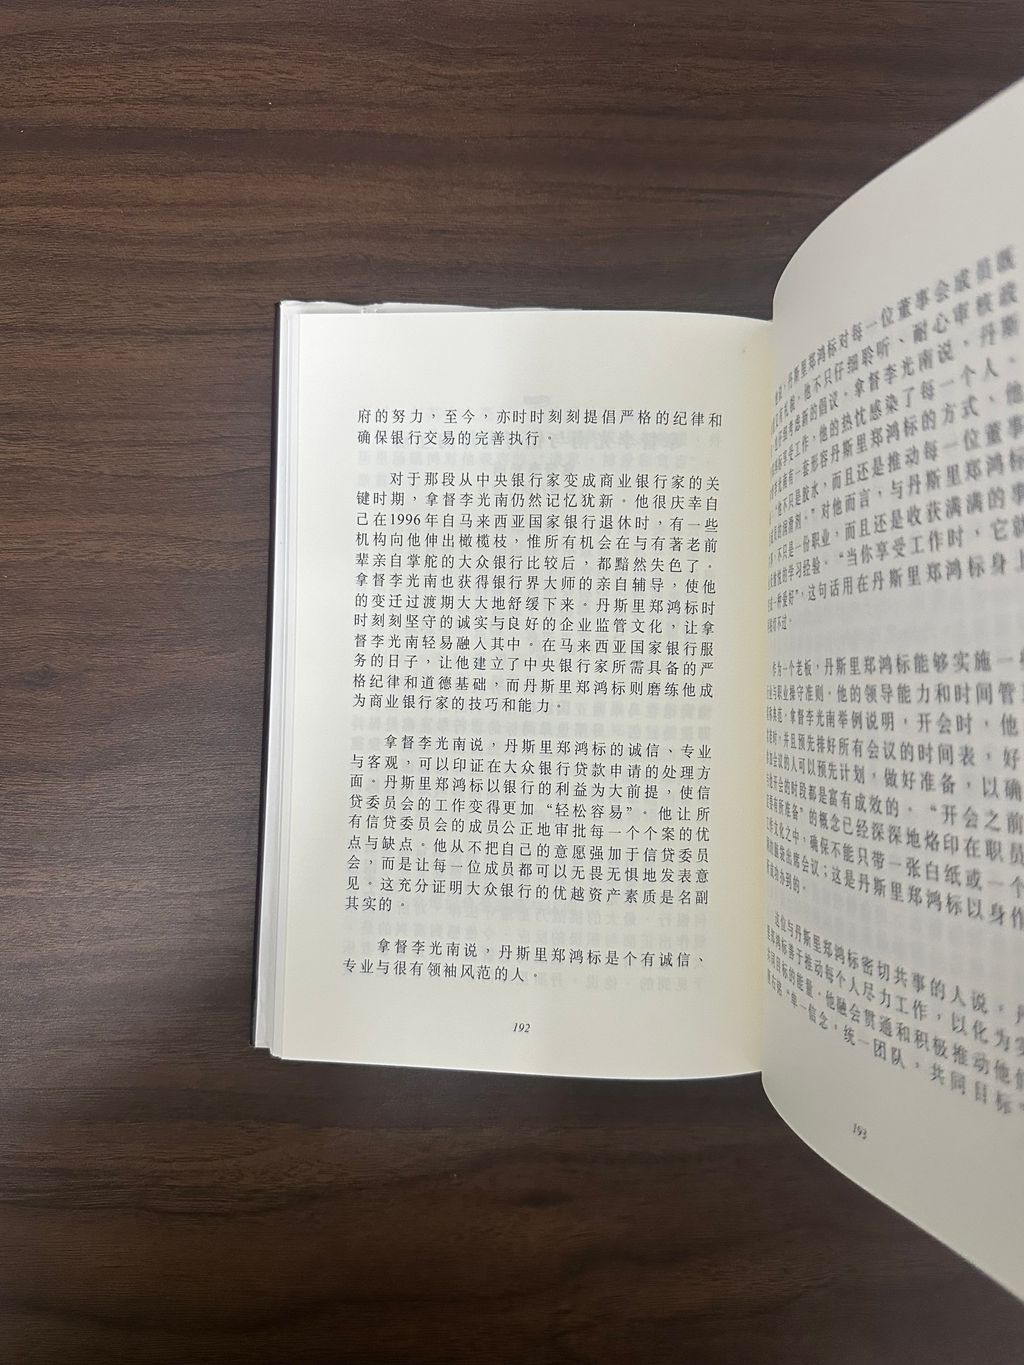 府的努力，至今，亦时时刻刻提倡严格的纪律和
确保银行交易的完善执行。
对于那段从中央银行家变成商业银行家的关
键时期，拿督李光南仍然记忆犹新。他很庆幸自
己在1996年自马来西亚国家银行退休时，有一些
机构向他伸出橄榄枝，惟所有机会在与有著老前
辈亲自掌舵的大众银行比较后，都黯然失色了。
拿督李光南也获得银行界大师的亲自辅导，使他
的变迁过渡期大大地舒缓下来。丹斯里郑鸿标时
时刻刻坚守的诚实与良好的企业监管文化，让拿
督李光南轻易融入其中。在马来西亚国家银行服
务的日子，让他建立了中央银行家所需具备的严
格纪律和道德基础，而丹斯里郑鸿标则磨练他成
为商业银行家的技巧和能力。
拿督李光南说，丹斯里郑鸿标的诚信、专业
与客观，可以印证在大众银行贷款申请的处理方
面。丹斯里郑鸿标以银行的利益为大前提，使信
贷委员会的工作变得更加“轻松容易”。他让所
有信贷委员会的成员公正地审批每一个个案的优
点与缺点。他从不把自己的意愿强加于信贷委员
会，而是让每一位成员都可以无畏无惧地发表意
见。这充分证明大众银行的优越资产素质是名副
其实的。
拿督李光南说，丹斯里郑鸿标是个有诚信、
专业与很有领袖风范的人。
192
丹斯里郑鸿标对每一位董事会成员既
他不只仔细聆听、耐心审核或
考虑新的倡议。拿督李光南说，丹斯
享受工作，他的热忱感染了每一个人、
有一套形容丹斯里郑鸿标的方式、他
他不只是胶水，而且还是推动每一位董事
润滑剂。”对他而言，与丹斯里郑鸿标
不只是一份职业，而且还是收获满满的事
的学习经验。“当你享受工作时，它就
一种爱好”，这句话用在丹斯里郑鸿标身上
不过。
作为一个老板，丹斯里郑鸿标能够实施一
与职业操守准则。他的领导能力和时间管
典范。拿督李光南举例说明，开会时，他
时，并且预先排好所有会议的时间表，好
会议的人可以预先计划，做好准备，以确
开会的时段都是富有成效的。“开会之前
有所准备”的概念已经深深地烙印在职员
文化之中，确保不能只带一张白纸或一个
脑袋出席会议；这是丹斯里郑鸿标以身作
办到的。
这位与丹斯里郑鸿标密切共事的人说，丹
郑鸿标善于推动每个人尽力工作，以化为实
目标的能量。他融会贯通和积极推动他
右铭“单一信念，统一团队，共同目标
193